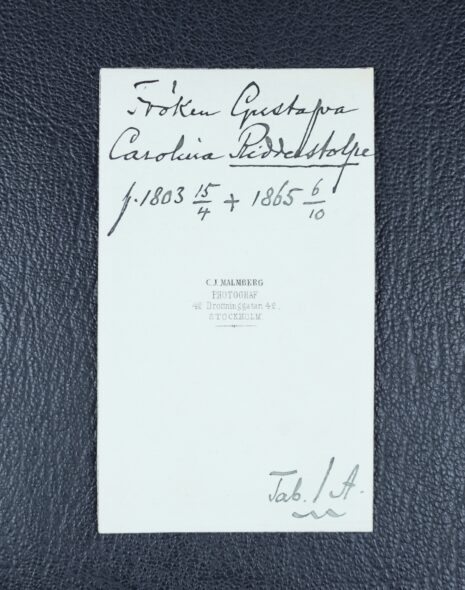 Fröken Gustafva
Carolina Ridderstolpe
f. 1803 15/4 + 1865 6/10
C.J. MALMBERG
PHOTOGRAF
42 Drottninggatan 42
STOCKHOLM
Tab. 1 A.